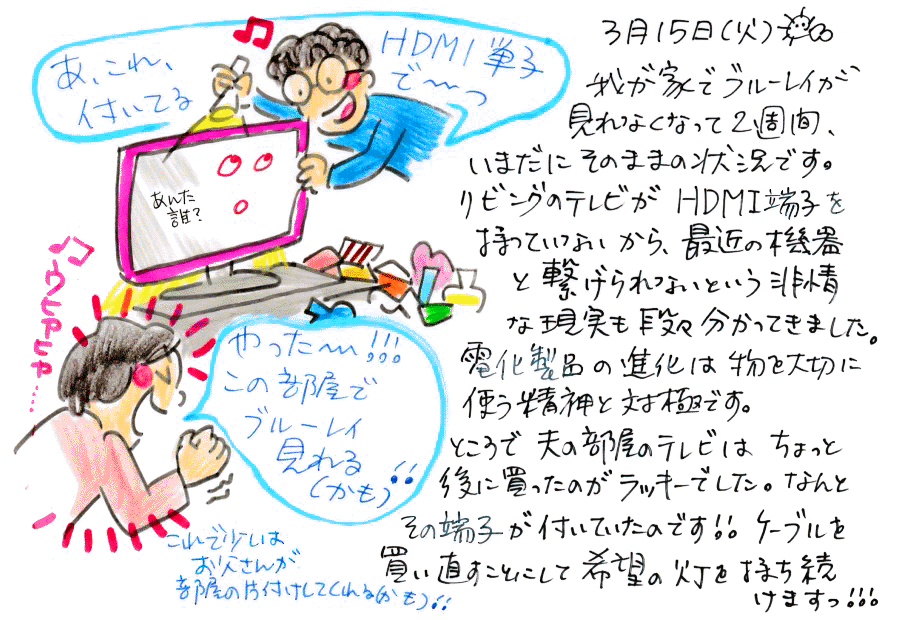 3月15日(火)
我が家でブルーレイが
見れなくなって2週間、
いまだにそのままの状況です。
リビングのテレビが HDMI端子を
持っていないから、最近の機器
と繋げられないという非情
な現実も段々分かってきました。
電化製品の進化は物を大切に
使う精神と対極です。
ところで夫の部屋のテレビはちょっと
後に買ったのがラッキーでした。なんと
その端子が付いていたのです!! ケーブルを
買い直すことにして希望の灯を持ち続
けますっ!!!
あ、これ、
付いてる
HDMI単子
で〜っ
あんた
誰?
ウヒアヒャ……
やった〜!!!
この部屋で
ブルーレイ
見れる
(かも)!!
これで少しは
お父さんが
部屋の片付けしてくれる(かも)!!